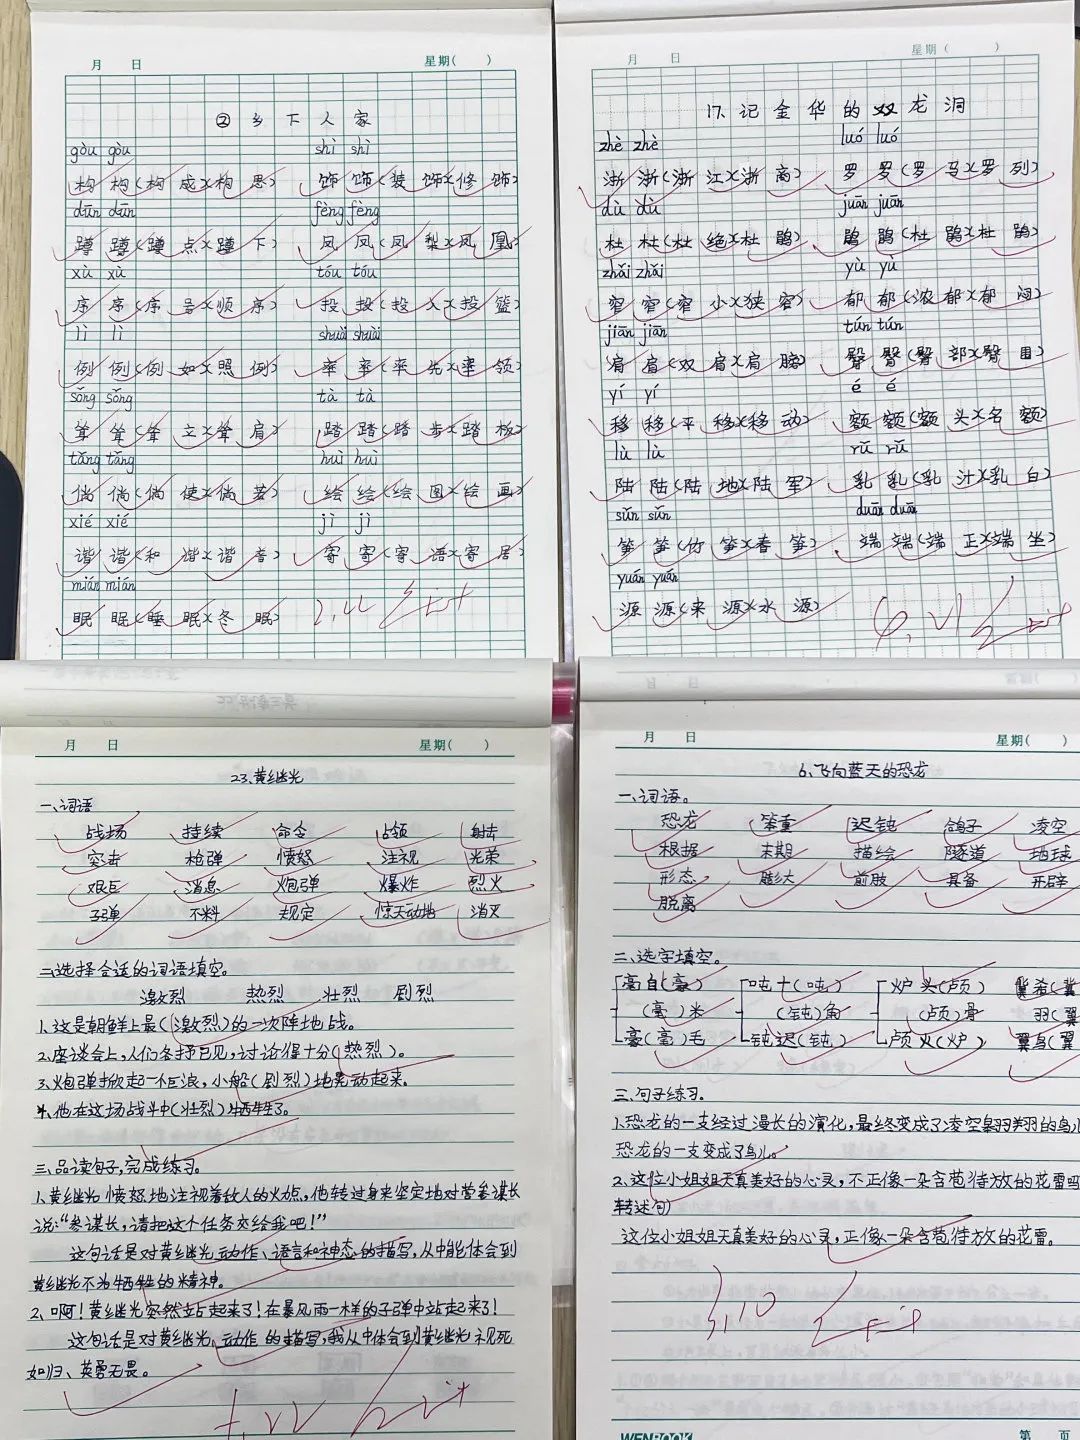 月 日 星期( )
② 乡下人家
gòu gòu shì shì
构 构(构成)(构思) 饰 饰(装饰)(修饰)
dūn dūn fèng fèng
蹲 蹲(蹲点)(蹲下) 凤 凤(凤梨)(凤凰)
xù xù tóu tóu
序 序(序号)(顺序) 投 投(投入)(投篮)
lì lì shuài shuài
例 例(例如)(照例) 率 率(率先)(率领)
sǒng sǒng tà tà
耸 耸(耸立)(耸肩) 踏 踏(踏步)(踏板)
tǎng tǎng huì huì
倘 倘(倘使)(倘若) 绘 绘(绘图)(绘画)
xié xié jì jì
谐 谐(和谐)(谐音) 寄 寄(寄语)(寄居)
mián mián
眠 眠(睡眠)(冬眠)
月 日 星期( )
17.记金华的双龙洞
zhè zhè luó luó
浙 浙(浙江)(浙商) 罗 罗(罗马)(罗列)
dù dù juān juān
杜 杜(杜绝)(杜鹃) 鹃 鹃(杜鹃)(杜鹃)
zhǎi zhǎi yù yù
窄 窄(窄小)(狭窄) 郁 郁(浓郁)(郁闷)
jiān jiān tún tún
肩 肩(双肩)(肩膀) 臀 臀(臀部)(臀围)
yí yí é é
移 移(平移)(移动) 额 额(额头)(名额)
lù lù rǔ rǔ
陆 陆(陆地)(陆军) 乳 乳(乳汁)(乳白)
sǔn sǔn duān duān
笋 笋(竹笋)(春笋) 端 端(端正)(端坐)
yuán yuán
源 源(来源)(水源)
月 日 星期( )
23.黄继光
一、词语
战场 持续 命令 占领 射击
突击 枪弹 愤怒 注视 光荣
艰巨 消息 炮弹 爆炸 烈火
子弹 不料 规定 惊天动地 消灭
二、选择合适的词语填空。
激烈 热烈 壮烈 剧烈
1、这是朝鲜上最(激烈)的一次阵地战。
2、座谈会上,人们各抒己见,讨论得十分(热烈)。
3、炮弹掀起一个巨浪,小船(剧烈)地晃动起来。
4、他在这场战斗中(壮烈)牺牲了。
三、品读句子,完成练习。
1、黄继光愤怒地注视着敌人的火力点,他转过身来坚定地对营参谋长
说:“参谋长,请把这个任务交给我吧!”
这句话是对黄继光动作、语言和神态的描写,从中能体会到
黄继光不为牺牲的精神。
2、啊!黄继光突然站起来了!在暴风雨一样的子弹中站起来了!
这句话是对黄继光动作的描写,我从中体会到黄继光视死
如归、英勇无畏。
月 日 星期( )
6、飞向蓝天的恐龙
一、词语。
恐龙 笨重 迟钝 鸽子 凌空
根据 末期 描绘 隧道 地球
形态 膨大 前肢 具备 开辟
脱离
二、选字填空。
毫 自(豪) 吨 十(吨) 炉 头(颅) 冀 希(冀
(毫)米 (钝)角 (颅)骨 羽(翼
豪(毫)毛 钝 迟(钝) 颅 火(炉) 翼 鸟(翼
三、句子练习。
1、恐龙的一支经过漫长的演化,最终变成了凌空翱翔的鸟儿
恐龙的一支变成了鸟儿。
2、这位小姐姐天真美好的心灵,不正像一朵含苞待放的花蕾吗
转述句)
这位小姐姐天真美好的心灵,正像一朵含苞待放的花蕾。
3.10
WENBOOK 第 页